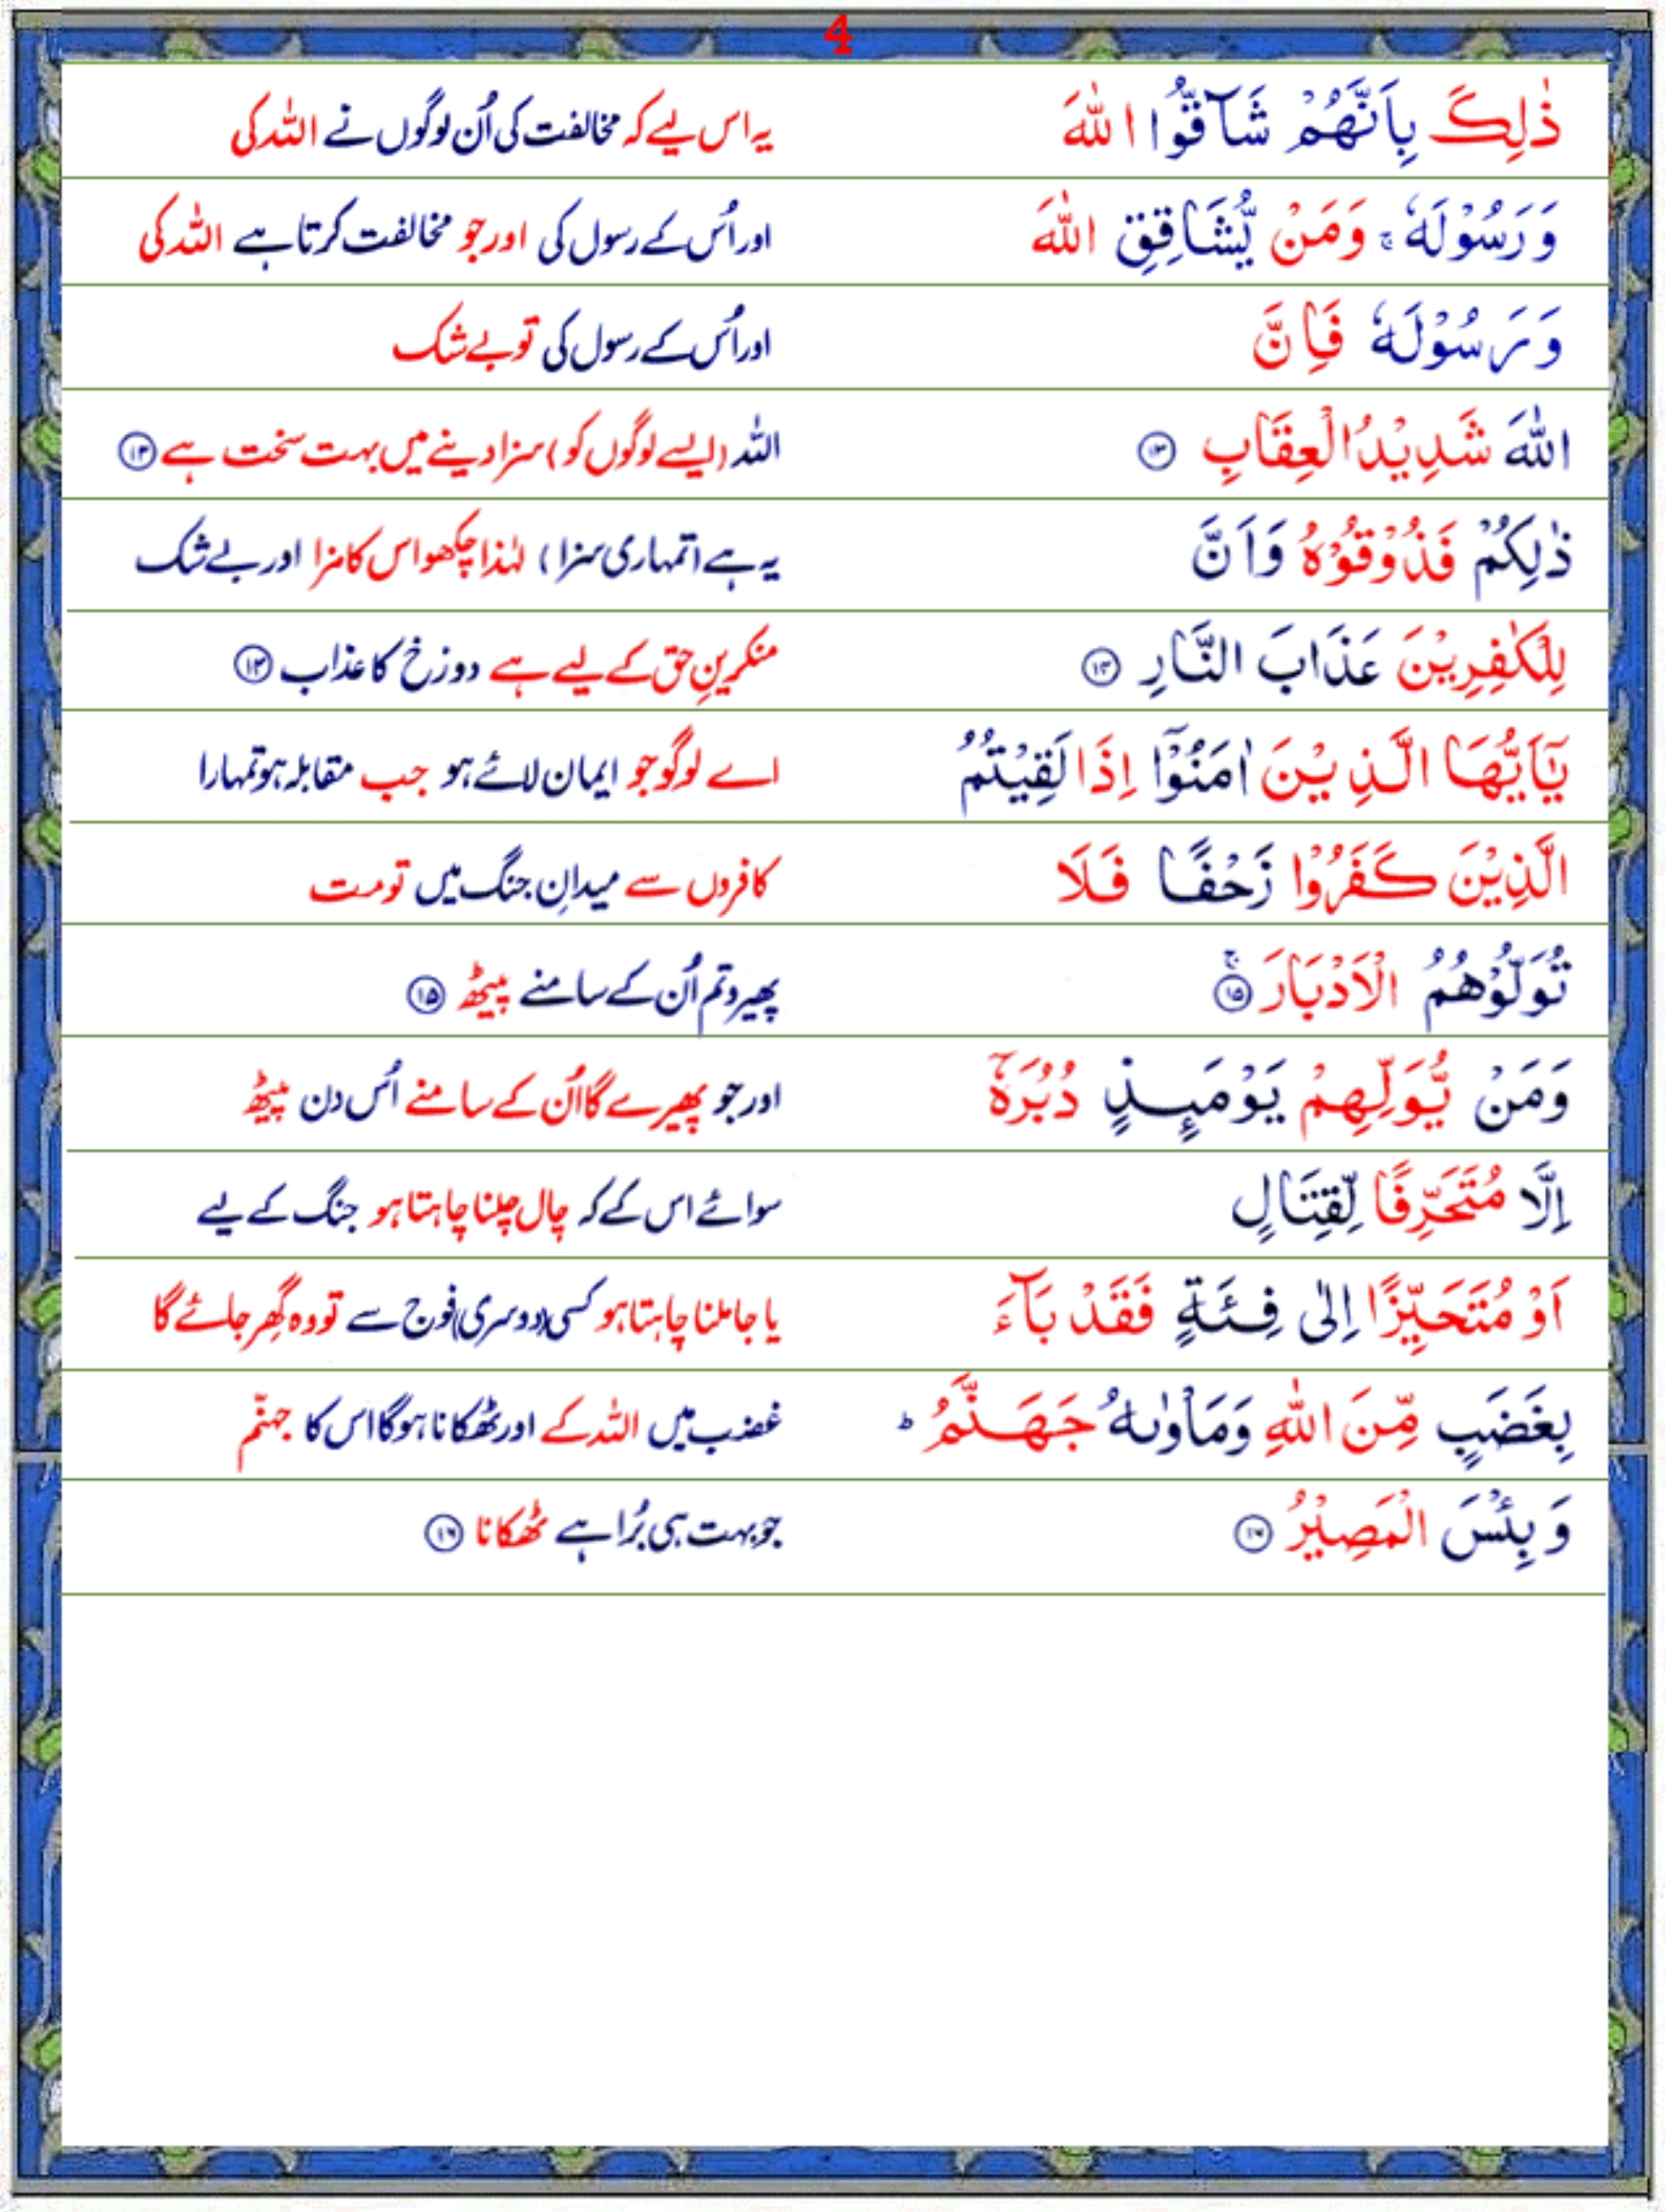 4
ذٰلِكَ بِاَنَّهُمْ شَآقُّوا اللّٰهَ یہ اس لیے کہ مخالفت کی اُن لوگوں نے اللہ کی
وَرَسُوْلَهٗ ۚ وَمَنْ يُّشَاقِقِ اللّٰهَ اور اُس کے رسول کی اور جو مخالفت کرتا ہے اللہ کی
وَرَسُوْلَهٗ فَاِنَّ اور اُس کے رسول کی تو بے شک
اللّٰهَ شَدِيْدُ الْعِقَابِ ⁠۝۱۳ اللہ (ایسے لوگوں کو) سزا دینے میں بہت سخت ہے ۝۱۳
ذٰلِكُمْ فَذُوْقُوْهُ وَاَنَّ یہ ہے (تمہاری سزا) لہٰذا چکھو اس کا مزا اور بے شک
لِلْكٰفِرِيْنَ عَذَابَ النَّارِ ۝۱۴ منکرینِ حق کے لیے ہے دوزخ کا عذاب ۝۱۴
يٰٓاَيُّهَا الَّذِيْنَ اٰمَنُوْٓا اِذَا لَقِيْتُمُ اے لوگو جو ایمان لائے ہو جب مقابلہ ہو تمہارا
الَّذِيْنَ كَفَرُوْا زَحْفًا فَلَا کافروں سے میدانِ جنگ میں تو مت
تُوَلُّوْهُمُ الْاَدْبَارَ ۝۱۵ۚ پھیرو تم اُن کے سامنے پیٹھ ۝۱۵
وَمَنْ يُّوَلِّهِمْ يَوْمَئِذٍ دُبُرَهٗٓ اور جو پھیرے گا اُن کے سامنے اُس دن پیٹھ
اِلَّا مُتَحَرِّفًا لِّقِتَالٍ سوائے اس کے کہ چال چلنا چاہتا ہو جنگ کے لیے
اَوْ مُتَحَيِّزًا اِلٰى فِئَةٍ فَقَدْ بَآءَ یا جا ملنا چاہتا ہو کسی (دوسری) فوج سے تو وہ گھِر جائے گا
بِغَضَبٍ مِّنَ اللّٰهِ وَمَاْوٰىهُ جَهَنَّمُ ؕ غضب میں اللہ کے اور ٹھکانا ہوگا اس کا جہنّم
وَبِئْسَ الْمَصِيْرُ ۝۱۶ جو بہت ہی بُرا ہے ٹھکانا ۝۱۶